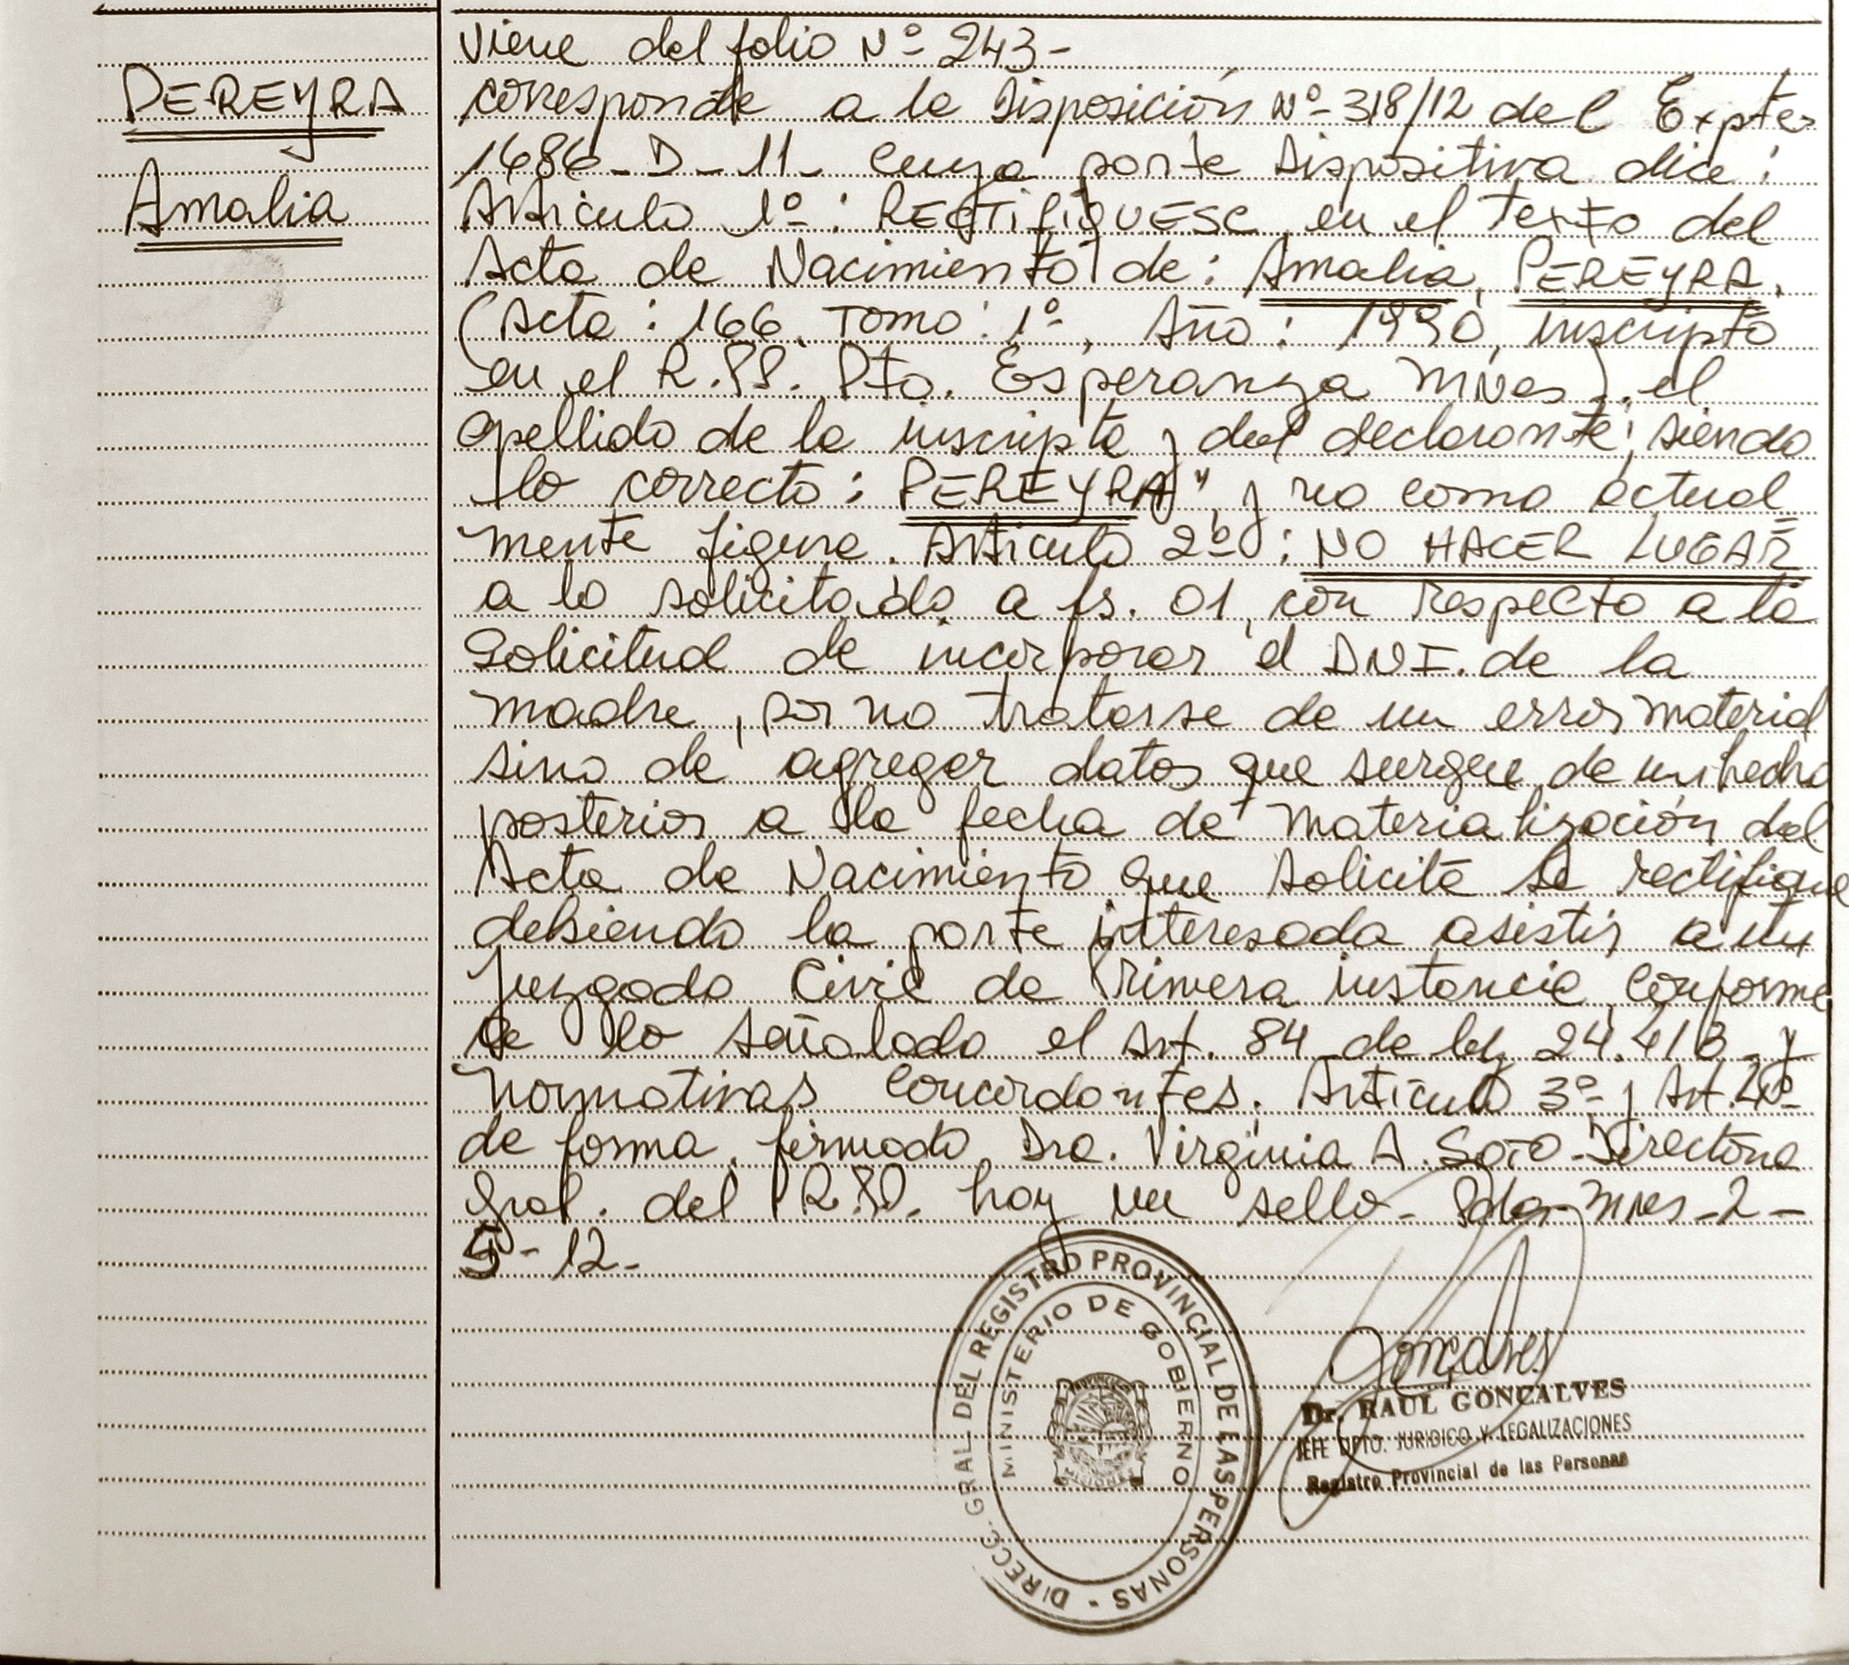 PEREYRA
Amalia
Viene del folio Nº 243-
corresponde a la Disposición Nº 318/12 del Expte
1686-D-11- cuya parte dispositiva dice:
Artículo 1º: RECTIFIQUESE en el texto del
Acta de Nacimiento de: Amalia, PEREYRA.
(Acta: 166, Tomo: 1º, Año: 1990, inscripto
en el R.PP. Pto. Esperanza Mnes), el
apellido de la inscripta y del declarante; siendo
lo correcto: PEREYRA", y no como actual=
mente figura. Artículo 2º: NO HACER LUGAR
a lo solicitado a fs. 01, con respecto a la
Solicitud de incorporar el DNI. de la
madre, por no tratarse de un error material
sino de agregar datos que surgen de un hecho
posterior a la fecha de materialización del
Acta de Nacimiento que solicita se rectifique
debiendo la parte interesada asistir a un
Juzgado Civil de Primera instancia, conforme
a lo señalado el Art. 84 de ley 24.413 y
normativas concordantes. Artículo 3º y Art. 4º
de forma, firmado Dra. Virginia A. Soto-Directora
Gral. del R.PP. hay un sello- Pdas-Mnes-2-
5-12-
DIRECC. GRAL. DEL REGISTRO PROVINCIAL DE LAS PERSONAS -
MINISTERIO DE GOBIERNO
Gonçalves
Dr. RAUL GONCALVES
JEFE DPTO. JURIDICO Y LEGALIZACIONES
Registro Provincial de las Personas